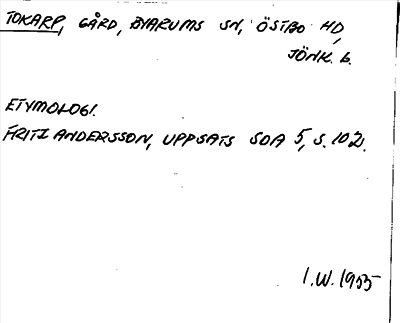 TOKARP, GÅRD, BYARUMS SN, ÖSTBO HD,
JÖNK. L.
ETYMOLOGI.
FRITZ ANDERSSON, UPPSATS SOA 5, S. 102.
I.W. 1955